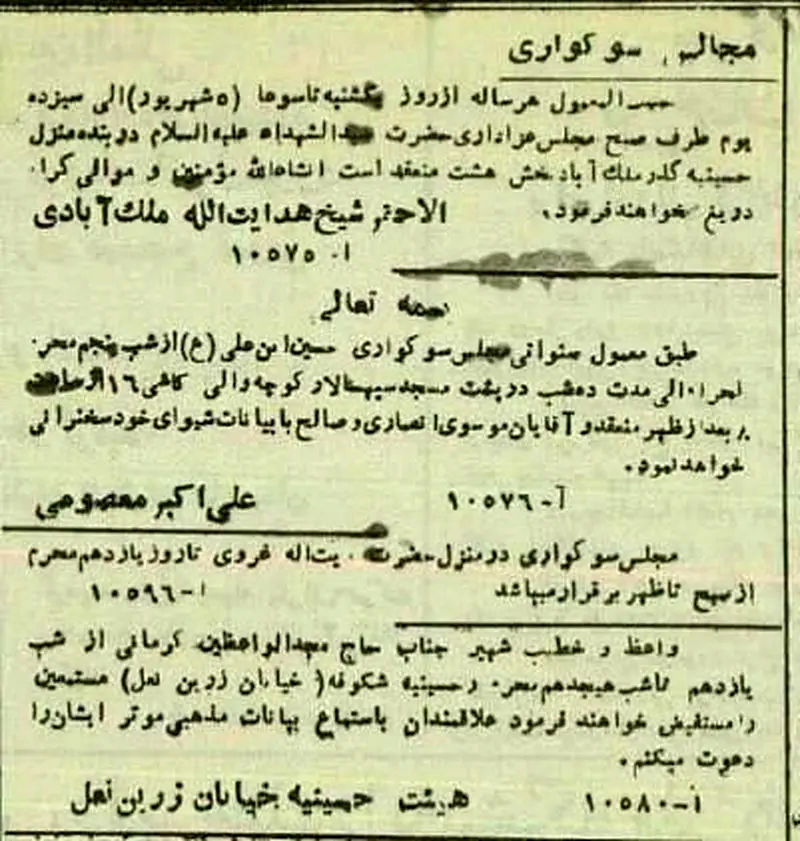 مجالس سوکواری
حسب المعمول هرساله ازروز یکشنبه تاسوعا (۵ شهریور) الی سیزده
یوم طرف صبح مجلس عزاداری حضرت سیدالشهداء علیه السلام در بنده منزل
حسینیه گذر ملک آباد بخش هشت منعقد است انشاءالله مؤمنین و موالی کرا.
دریغ نخواهند فرمود.
الاحقر شیخ هدایت الله ملک آبادی
ا- ۱۰۵۷۵
بسمه تعالی
طبق معمول سنواتی مجلس سوکواری حسین ابن علی (ع) از شب پنجم محر.
لحرام الی مدت ده شب در پشت مسجد سپهسالار کوچه والی کاشی ۱۶ از ساعت
۸ بعد از ظهر منعقد و آقایان موسوی انصاری و صالح با بیانات شیوای خود سخنرانی
خواهد نمود.
آ- ۱۰۵۷۶
علی اکبر معصومی
مجلس سوکواری در منزل حضرت آیت اله غروی تا روز یازدهم محرم
از صبح تا ظهر برقرار میباشد
ا- ۱۰۵۹۶
واعظ و خطیب شهیر جناب حاج مجدالواعظین کرمانی از شب
یازدهم تا شب هیجدهم محرم در حسینیه شکوفه (خیابان زرین نعل) مستمعین
را مستفیض خواهند فرمود علاقمندان باستماع بیانات مذهبی موثر ایشان را
دعوت میکنم.
أ- ۱۰۵۸۰
هیئت حسینیه خیابان زرین نعل